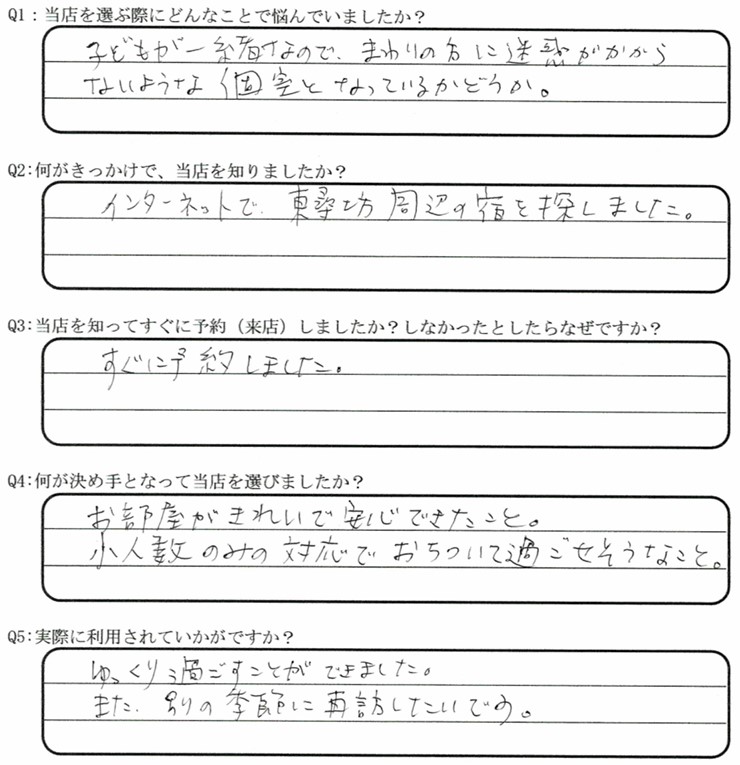 Q1：当店を選ぶ際にどんなことで悩んでいましたか？
子どもが一緒なので、まわりの方に迷惑がかから
ないような個室となっているかどうか。
Q2：何がきっかけで、当店を知りましたか？
インターネットで、東尋坊周辺の宿を探しました。
Q3：当店を知ってすぐに予約（来店）しましたか？しなかったとしたらなぜですか？
すぐに予約しました。
Q4：何が決め手となって当店を選びましたか？
お部屋がきれいで安心できたこと。
少人数のみの対応でおちついて過ごせそうなこと。
Q5：実際に利用されていかがですか？
ゆっくり過ごすことができました。
また、別の季節に再訪したいです。